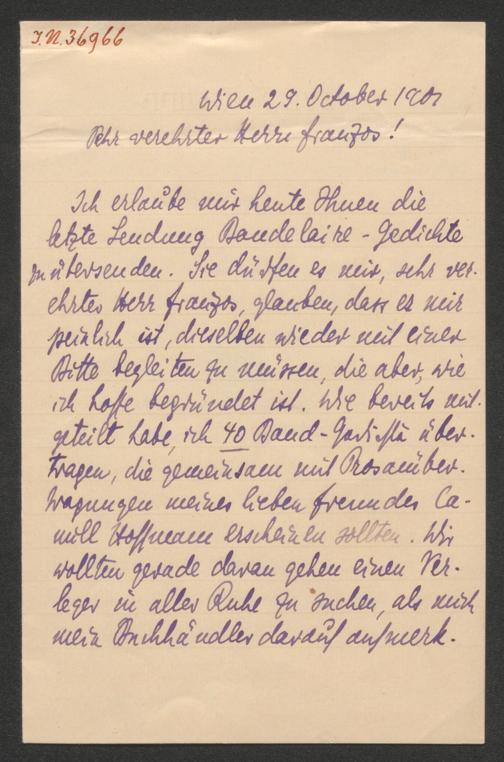 I.N. 36966
Wien 29. October 1901
Sehr verehrter Herr Franzos!
Ich erlaube mir heute Ihnen die
letzte Sendung Baudelaire-Gedichte
zu übersenden. Sie dürfen es mir, sehr ver-
ehrter Herr Franzos, glauben, dass es mir
peinlich ist, dieselben wieder mit einer
Bitte begleiten zu müssen, die aber, wie
ich hoffe begründet ist. Wie bereits mit-
geteilt habe ich 40 Baud-Gedichte über-
tragen, die gemeinsam mit Prosaüber-
tragungen meines lieben Freundes Ca-
mill Hoffmann erscheinen sollten. Wir
wollten gerade daran gehen einen Ver-
leger in aller Ruhe zu suchen, als mich
mein Buchhändler darauf aufmerk-